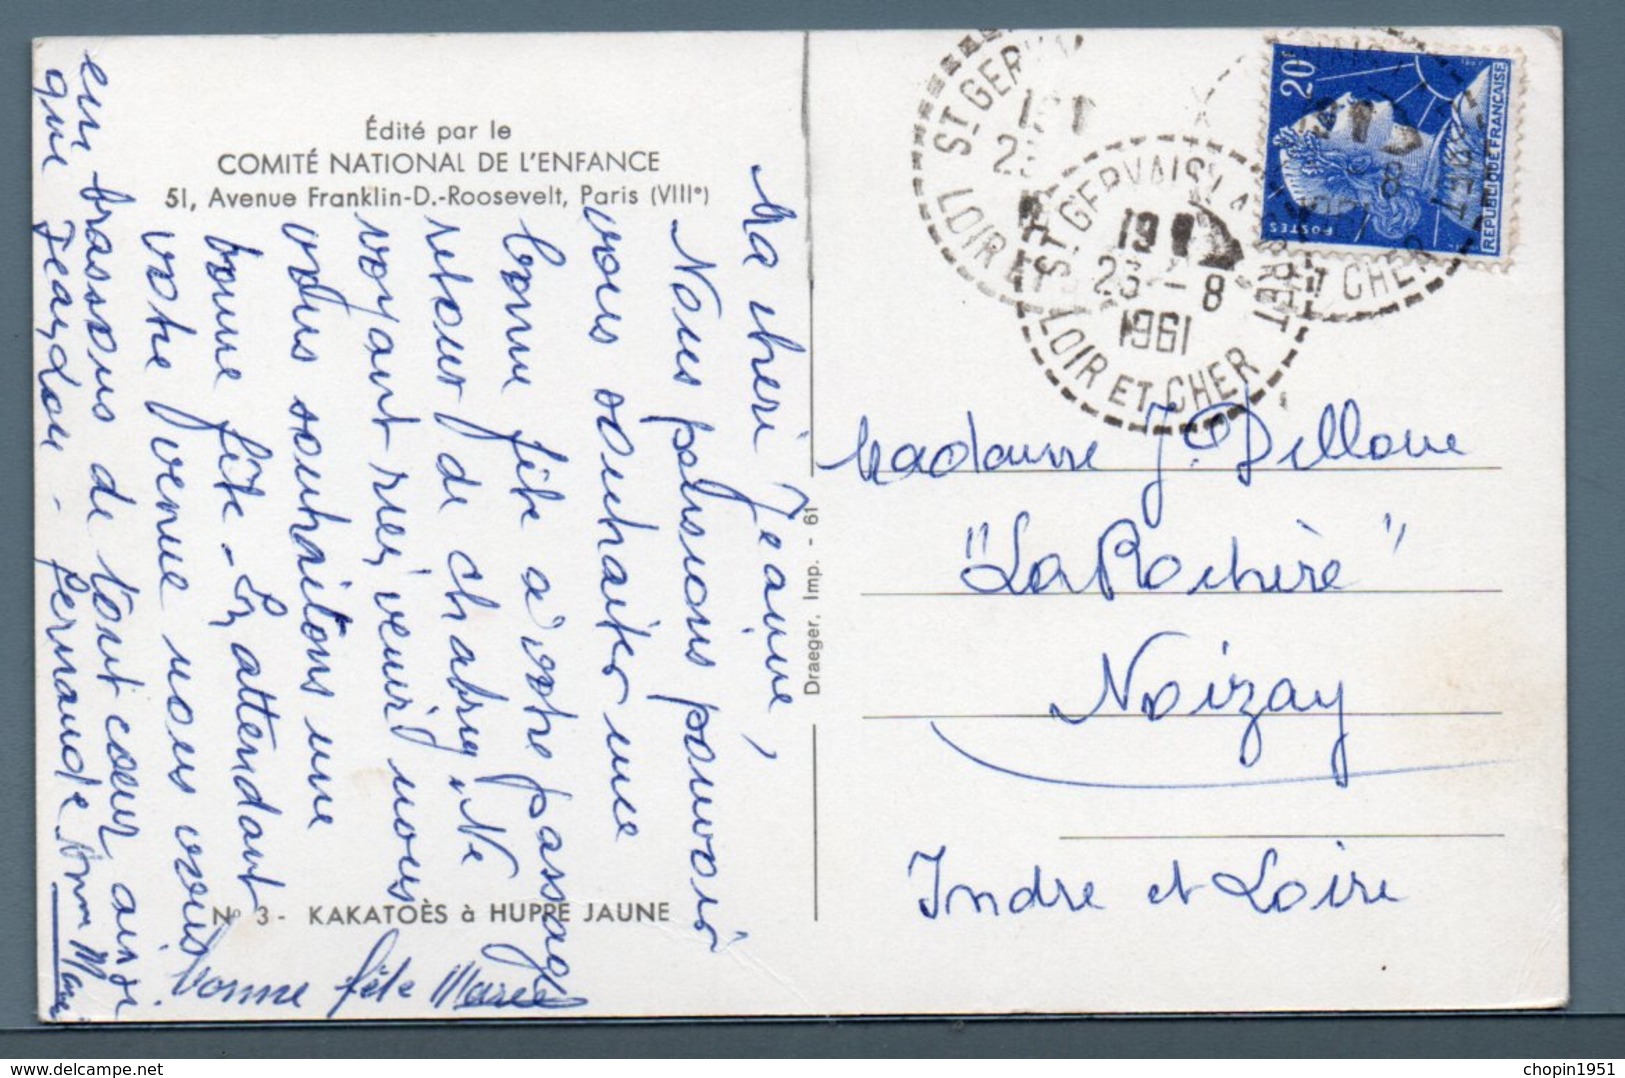 Édité par le
COMITÉ NATIONAL DE L'ENFANCE
51, Avenue Franklin-D.-Roosevelt, Paris (VIIIe)
Ma cheri Jeanne,
Nous pensions pouvoir
vous souhaiter une
bonne fête a votre passage
retour de chabrys. Ne
voyant rien venir nous
vous souhaitons une
bonne fête - En attendant
votre venue nous vous
embrassons de tout cœur ainsi
que Jean Lou - Fernande
bonne fête Marcel
N° 3 - KAKATOÈS à HUPPE JAUNE
Draeger, Imp. - 61
ST GERVAIS LA FORET
19
23 - 8
1961
LOIR ET CHER
ST GERVAIS
LOIR ET
ET CHER
20F
POSTES
REPUBLIQUE FRANÇAISE
Madame J. Dillone
"La Rochère"
Noizay
Indre et Loire
chopin1951